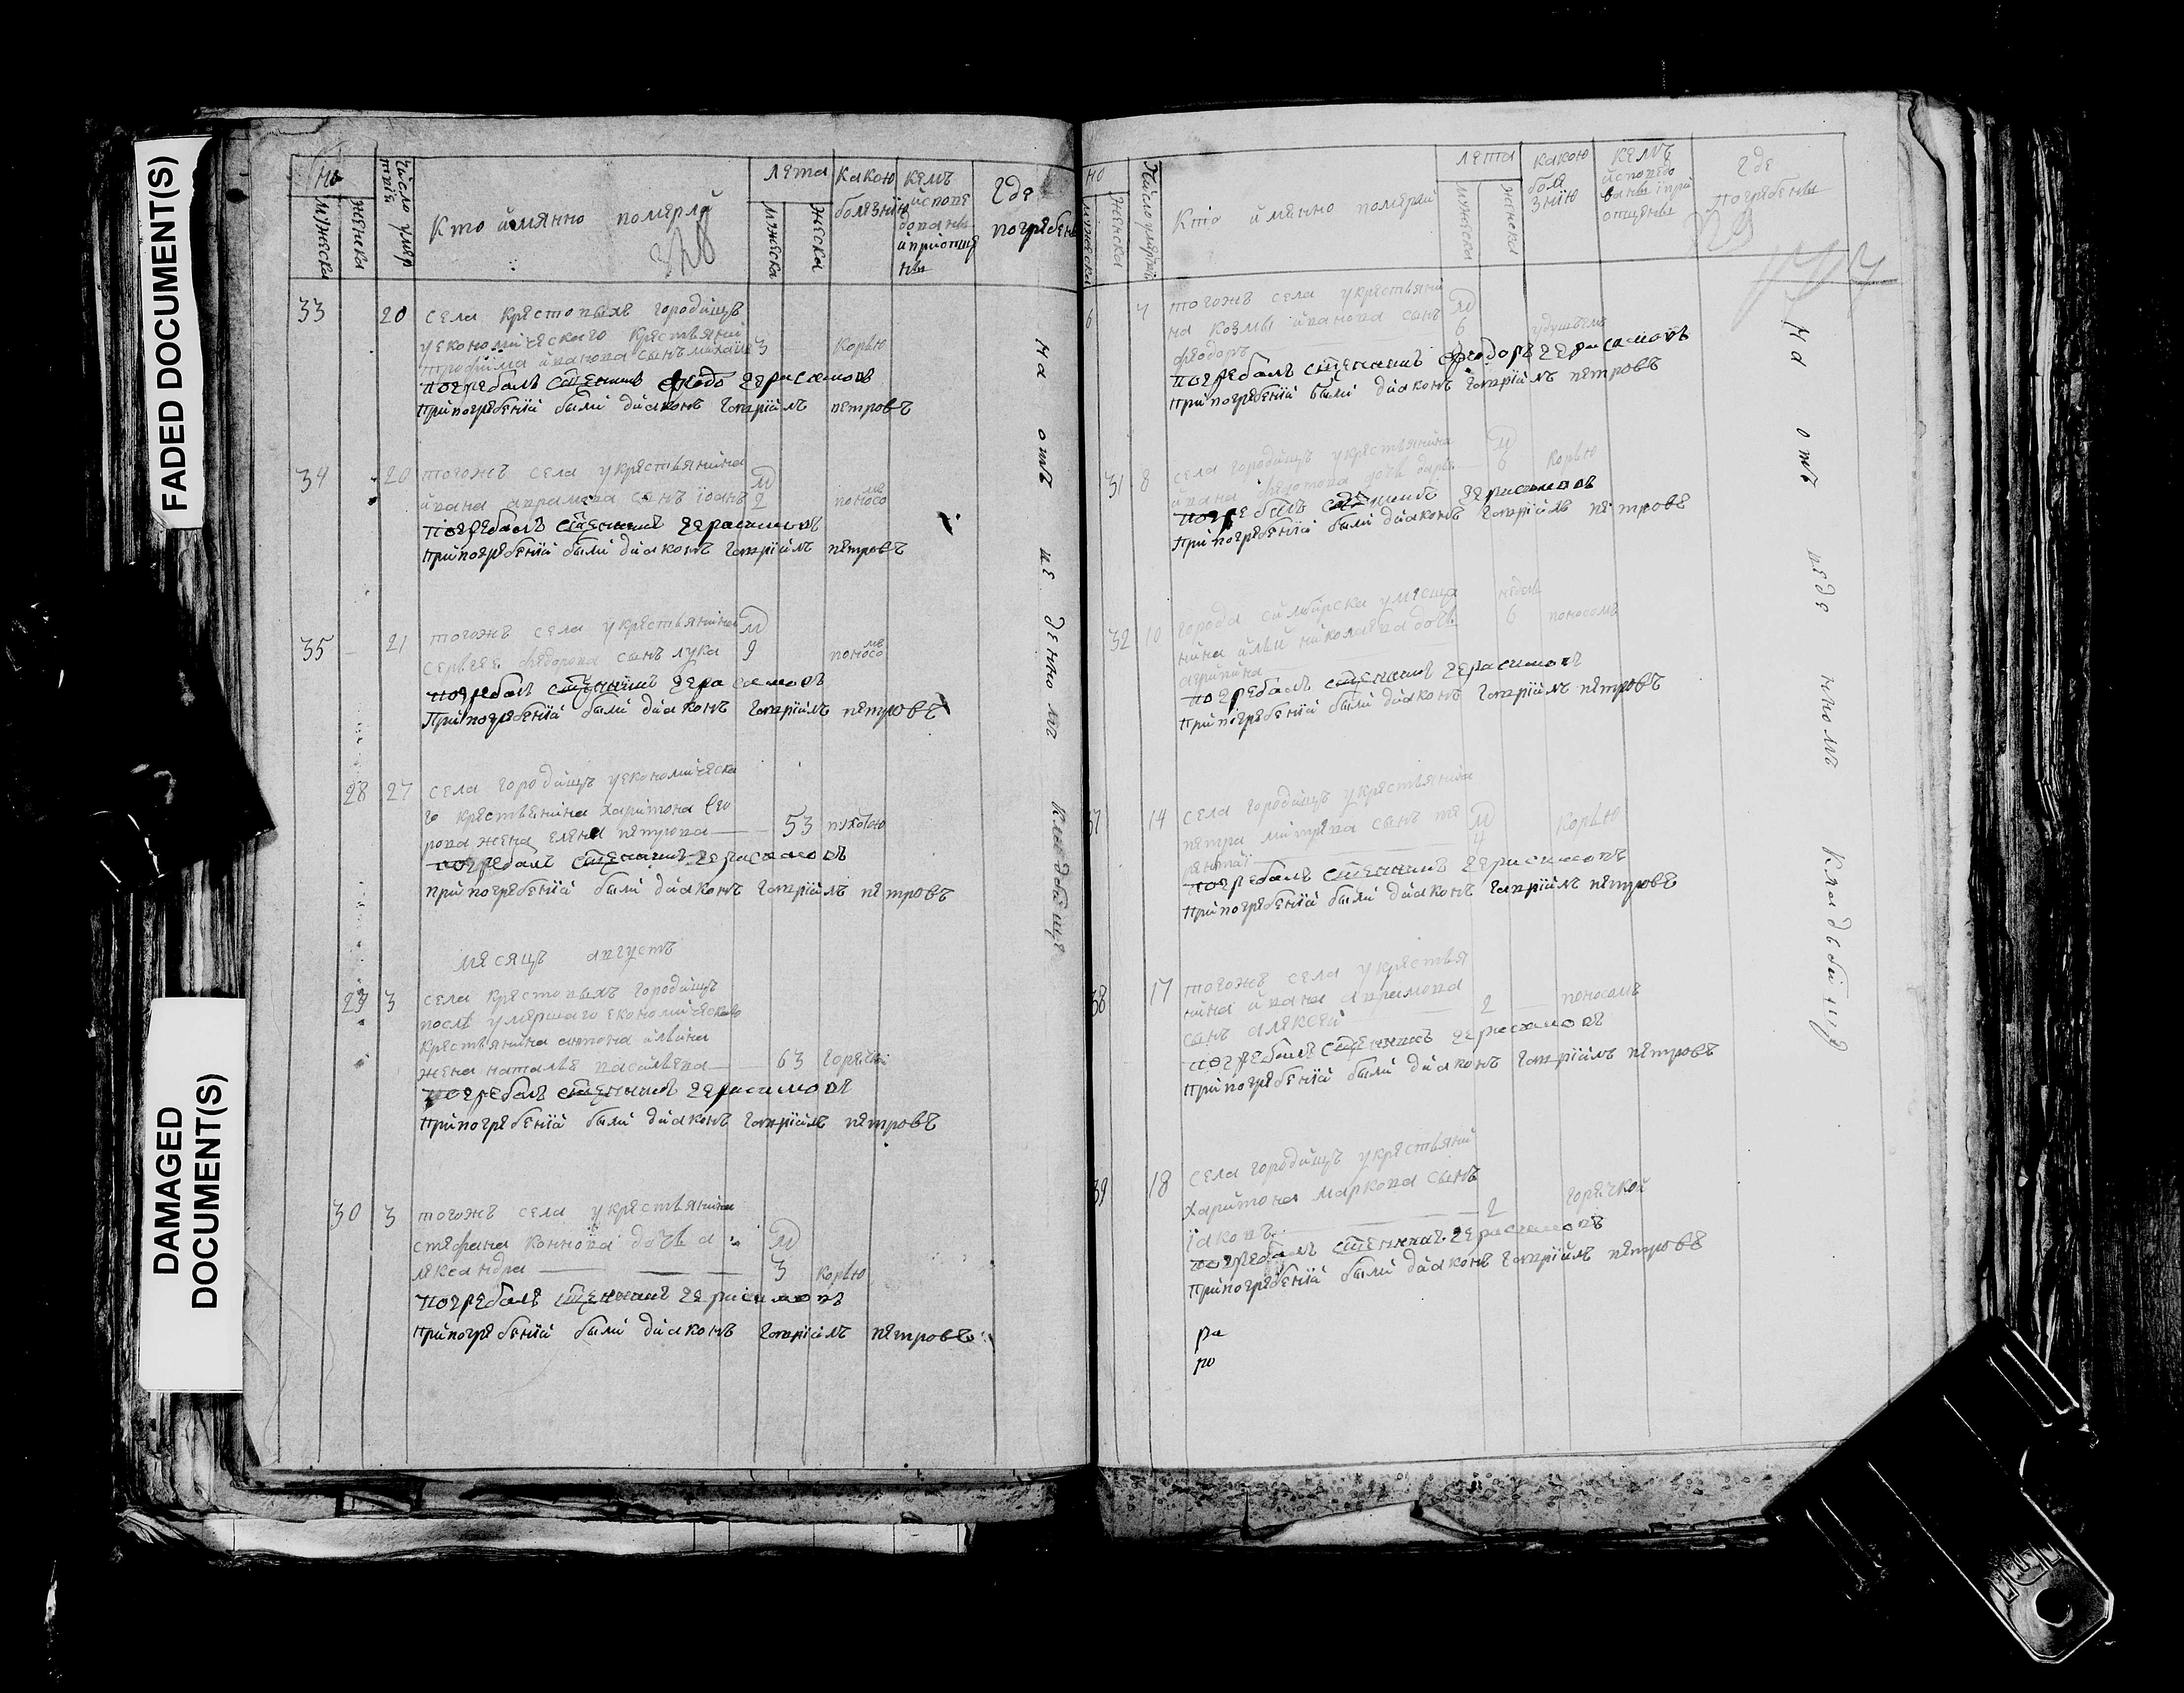 FADED DOCUMENT(S)
DAMAGED
DOCUMENT(S)
но
мужеска
женска
число умер
твїя
Кто имянно померлй
лета
мужеска
женска
какою
болезнию
кемъ
исповe
дованы
и приотще
ны
где
погребены
33 20 села крестовыхъ городищъ
у економическаго крестьянин
трофима иванова сынъ михаил 3 корью
погребалъ священникъ федо герасимовъ
при погребенїи были диаконъ гаврїилъ петровъ
34 20 тогожъ села у крестьянина
ивана аврамова сынъ їоанъ м 2 поносомъ
погребалъ священникъ герасимовъ
при погребенїи были диаконъ гаврїилъ петровъ
35 21 тогожъ села у крестьянина
сергеe федорова сынъ лука м 9 поносомъ
погребалъ священникъ герасимовъ
при погребенїи были диаконъ гаврїилъ петровъ
28 27 села городищъ у економическа
го крестьянина харитона его
рова жена елена петрова 53
погребалъ священникъ герасимовъ
при погребенїи были диаконъ гаврїилъ петровъ
месяцъ августъ
29 3 села крестовыхъ городищъ
послѣ умершаго економическаво
крестьянина антона ильина
жена наталье васильева 63
погребалъ священникъ герасимовъ
при погребенїи были диаконъ гаврїилъ петровъ
30 3 тогожъ села у крестьянина
стефана коннова дочь а
лександра м 3 корью
погребалъ священникъ герасимовъ
при погребенїи были диаконъ гаврїилъ петровъ
на отъ ве денномъ кладбище
но
мужеска
женска
число умерт
Кто имянно померлй
лета
мужеска
женска
какою
боле
знию
кемъ
исповедо
ваны и прй
отщены
где
погребены
6 4 тогожъ села у крестьяни
на козмы иванова сынъ
феодоръ м 6 удушьемъ
погребалъ священникъ феодоръ герасимовъ
при погребенїи были диаконъ гаврїилъ петровъ
31 8 села городищъ у крестьянина
ивана федотова дочь дарь м 6 корью
погребалъ священникъ герасимовъ
при погребенїи были диаконъ гаврїилъ петровъ
32 10 города симбирска у меща
нина ильи николаева дочь недель 6 поносомъ
погребалъ священникъ герасимовъ
при погребенїи были диаконъ гаврїилъ петровъ
37 14 села городищъ у крестьянина
петра митрева сынъ те
рентїй м 4 корью
погребалъ священникъ герасимовъ
при погребенїи были диаконъ гаврїилъ петровъ
38 17 тогожъ села у крестья
нина ивана аврамова
сынъ алексей 2 поносомъ
погребалъ священникъ герасимовъ
при погребенїи были диаконъ гаврїилъ петровъ
39 18 села городищъ у крестьяни
харитона маркова сынъ
їаковъ 2 горячкой
погребалъ священникъ герасимовъ
при погребенїи были диаконъ гаврїилъ петровъ
ра
ро
на отъ веде нномъ кладьбище